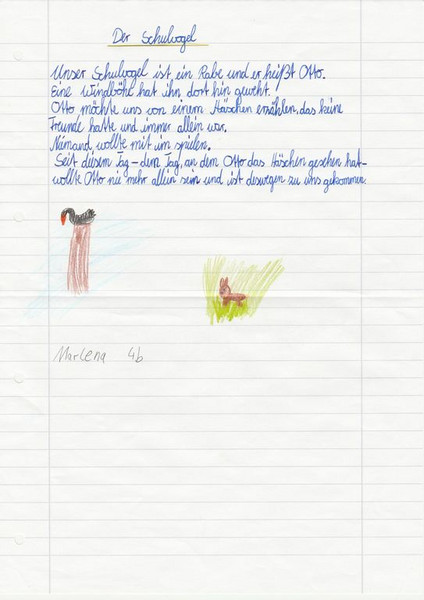 Der Schulvogel
Unser Schulvogel ist ein Rabe und er heißt Otto.
Eine Windböhe hat ihn dort hin geweht.
Otto möchte uns von einem Häschen erzählen, das keine
Freunde hatte und immer allein war.
Niemand wollte mit im spielen.
Seit diesem Tag - dem Tag, an dem Otto das Häschen gesehen hat -
wollte Otto nie mehr allein sein und ist deswegen zu uns gekommen.
Marlena 4b